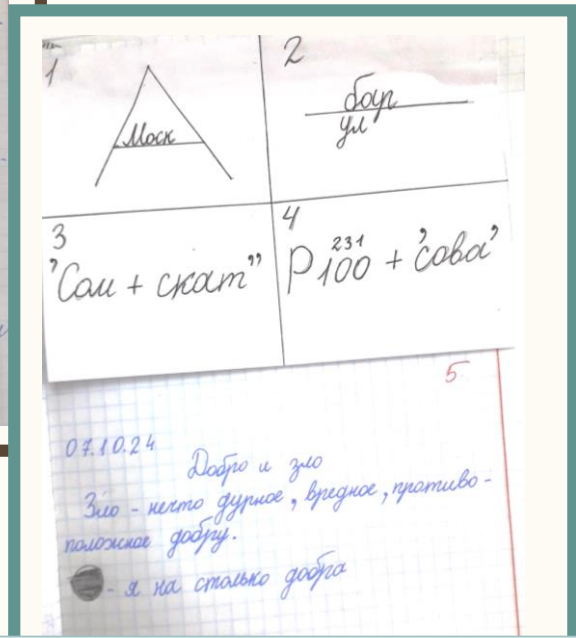 1
Моск
2
бар
ул
3
'Сом + скат''
4
231
Р100 + 'сова'
5
07.10.24
Добро и зло
Зло - нечто дурное, вредное, противо-
положное добру.
- я на столько добра